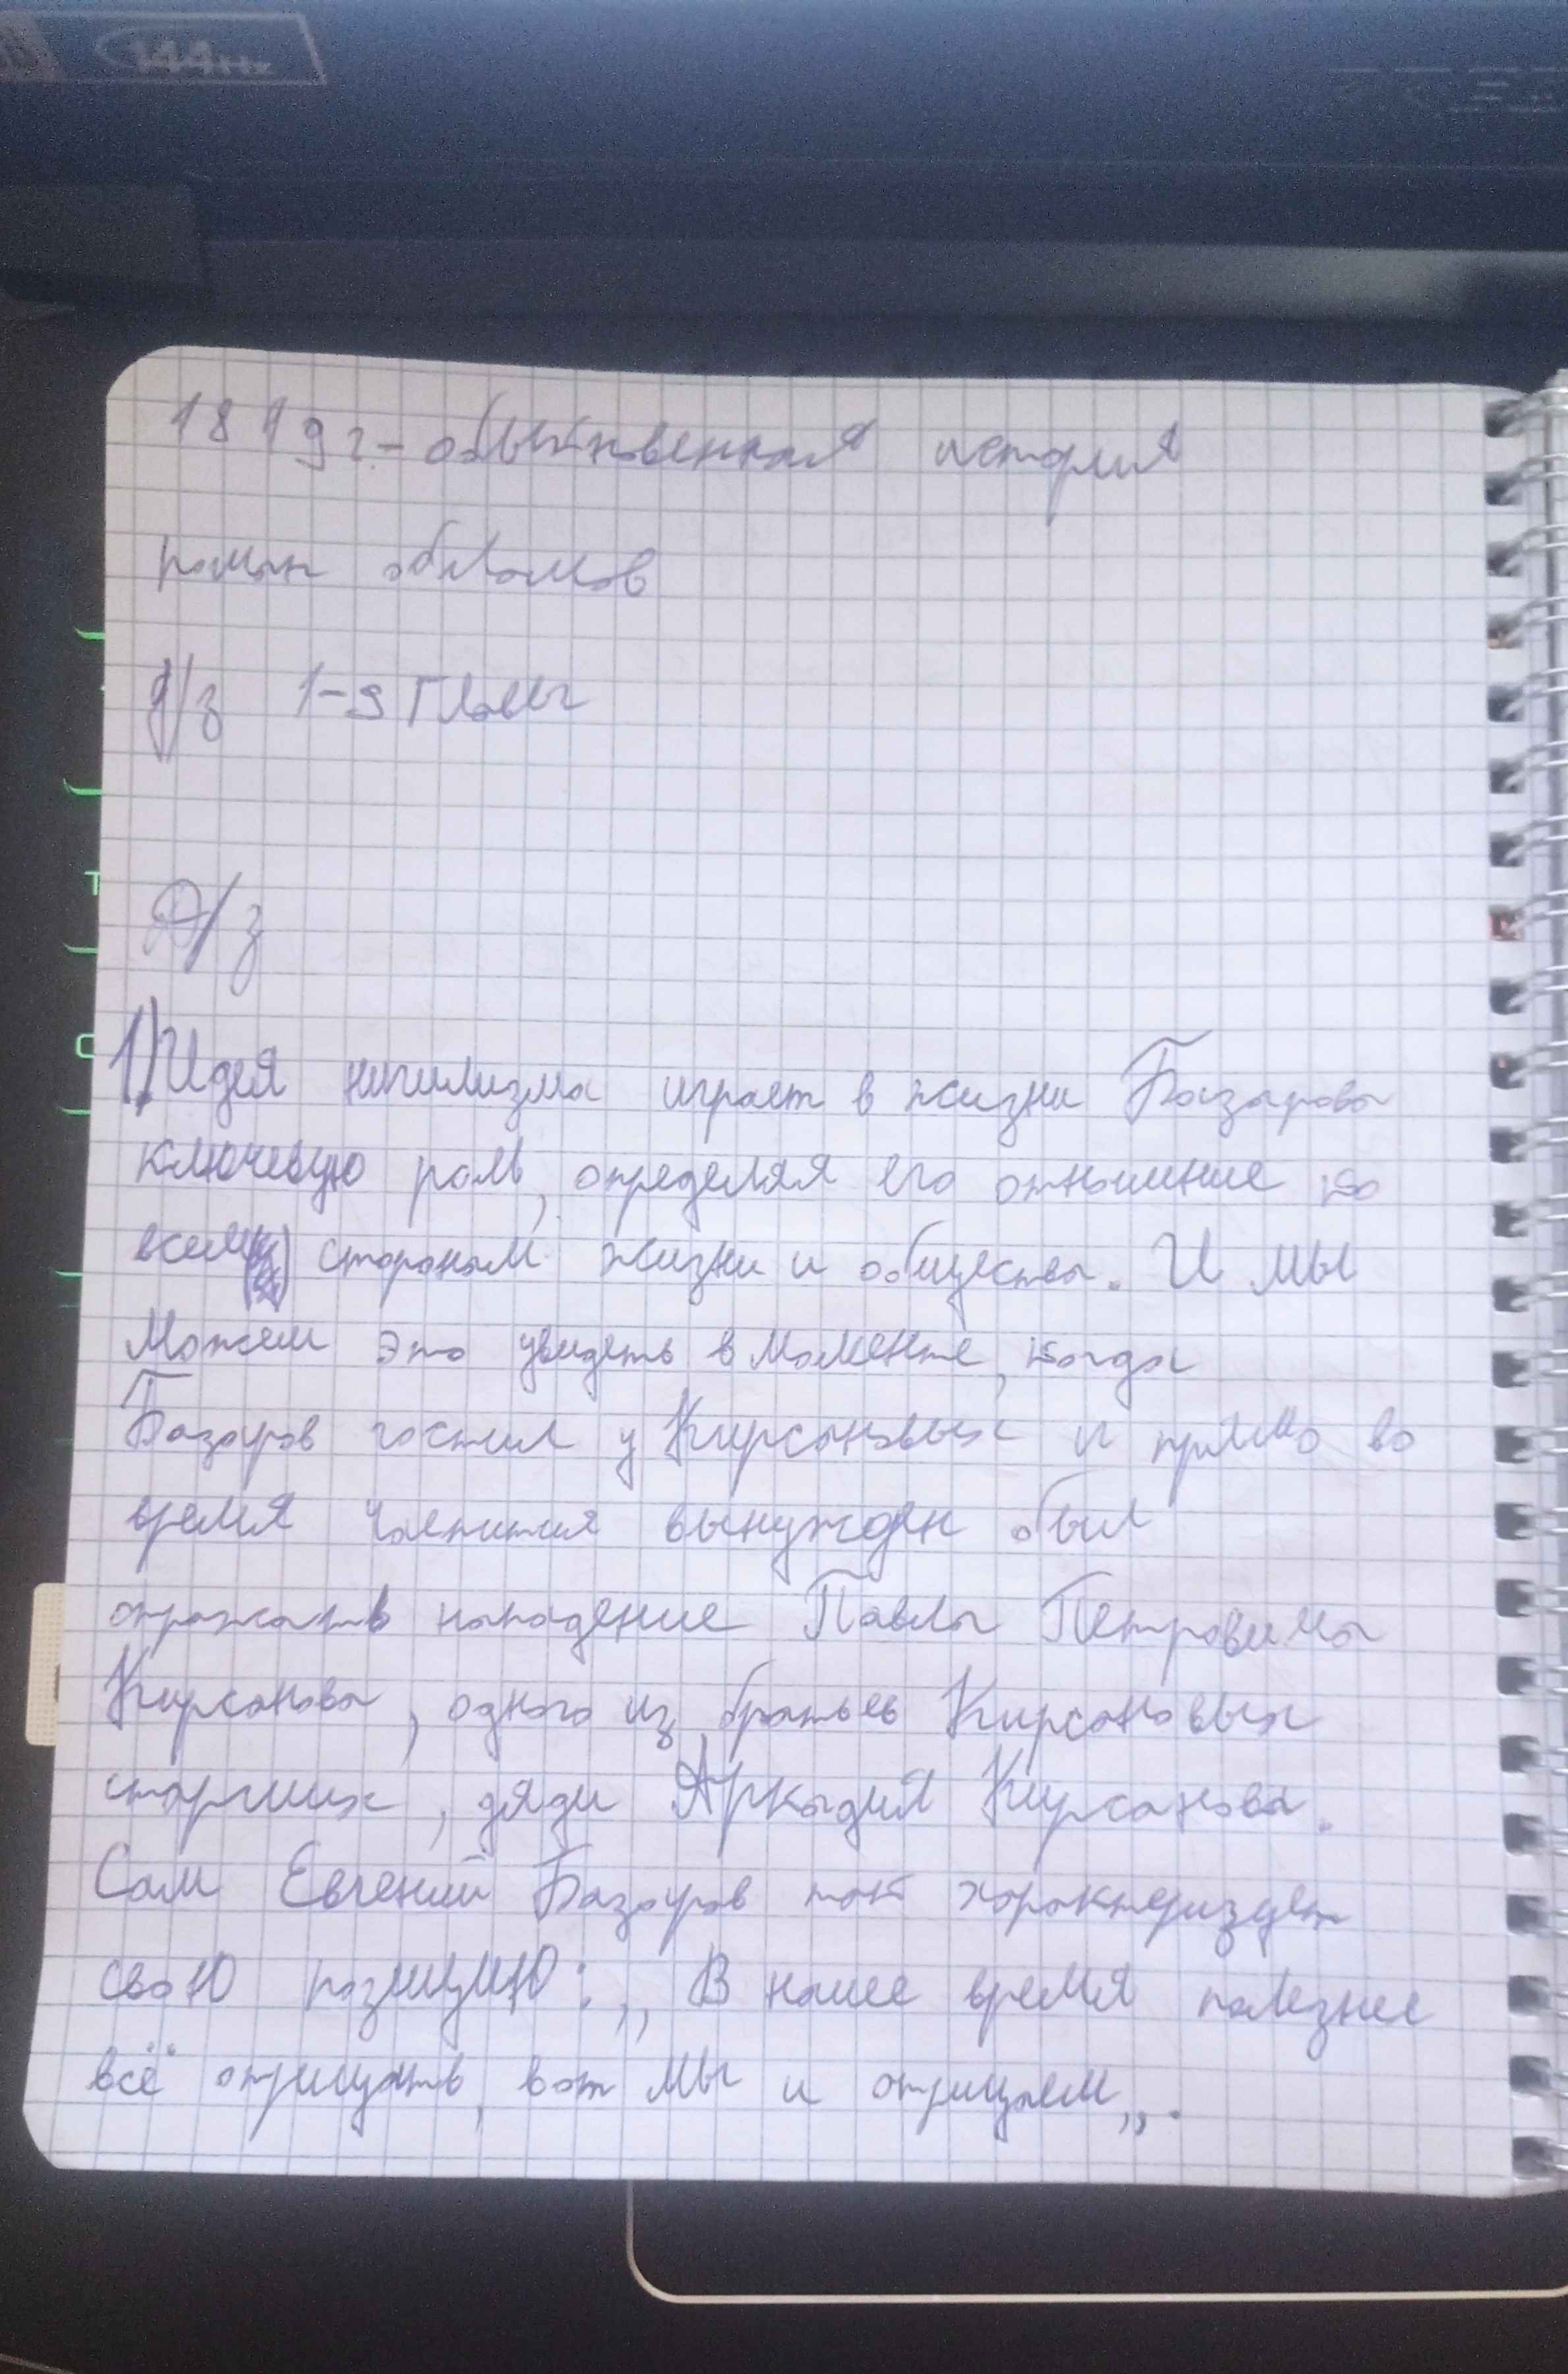 144Hz
1819г.- обыкновенная история
роман обломов
д/з 1-9 главы
Д/з
1) Идея нигилизма играет в жизни Базарова
ключевую роль, определяя его отношение ко
всем сторонам жизни и общества. И мы
можем это увидеть в моменте, когда
Базаров гостил у Кирсановых и прямо во
время чаепития вынужден был
отражать нападение Павла Петровича
Кирсанова, одного из братьев Кирсановых
старших, дяди Аркадия Кирсанова.
Сам Евгений Базаров так характеризует
свою позицию: ,, В наше время полезнее
всё отрицать, вот мы и отрицаем,,.